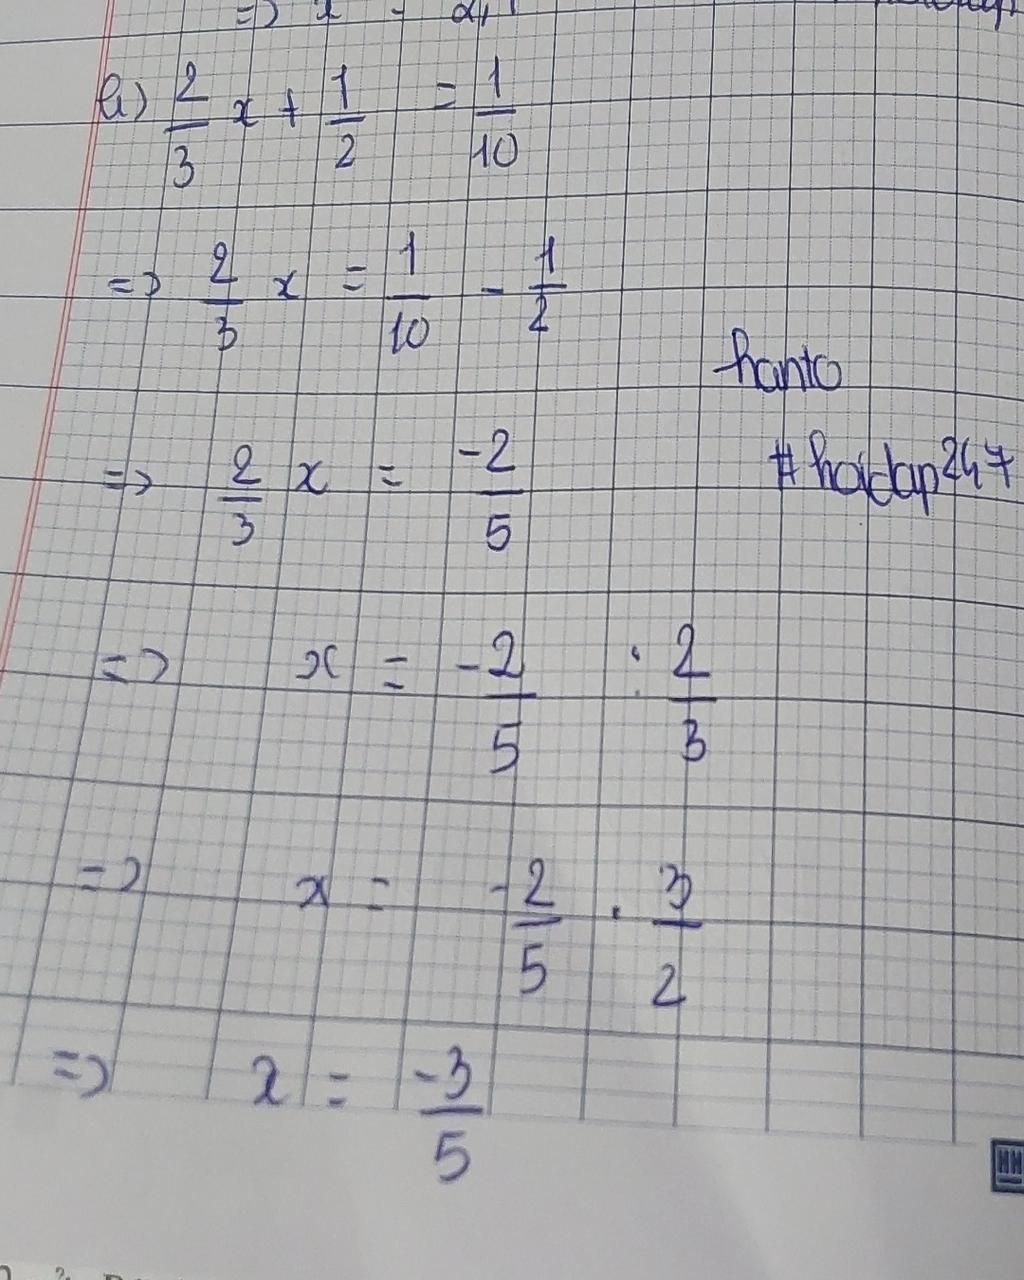 => x
a) 2/3 x + 1/2 = 1/10
=> 2/3 x = 1/10 - 1/2
hanto
=> 2/3 x = -2/5
#hoidap247
=> x = -2/5 : 2/3
=> x = -2/5 . 3/2
=> x = -3/5